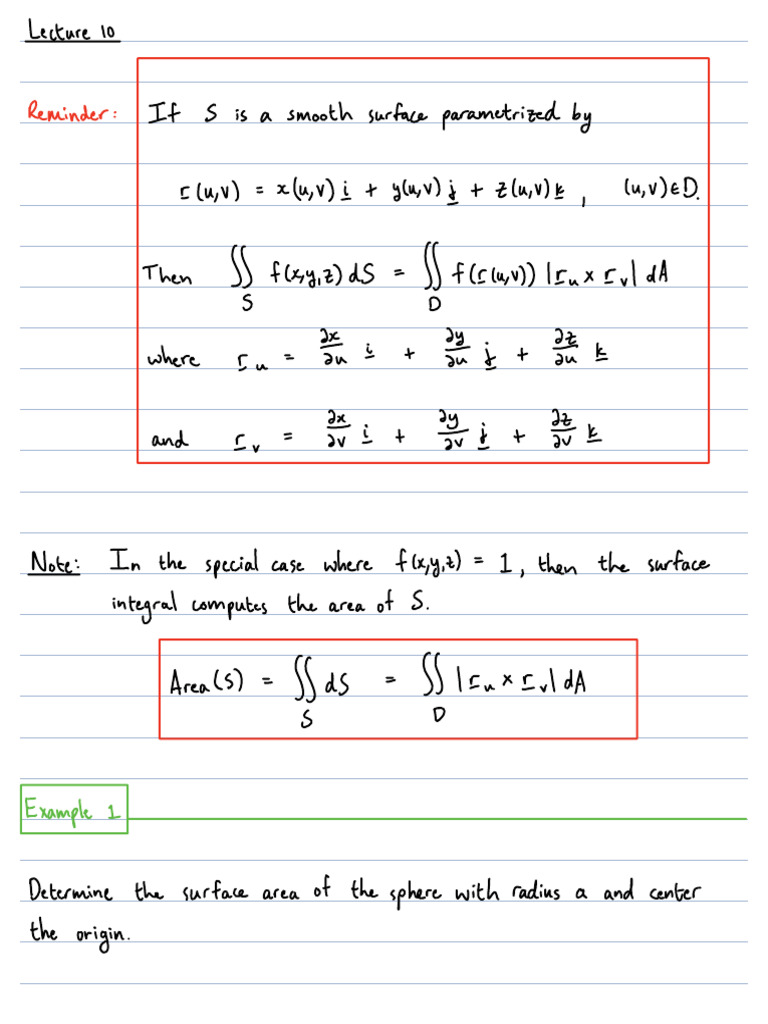 Lecture 10
Reminder: If S is a smooth surface parametrized by
r(u,v) = x(u,v) i + y(u,v) j + z(u,v) k , (u,v) ∈ D.
Then ∬_S f(x,y,z) dS = ∬_D f(r(u,v)) |r_u × r_v| dA
where r_u = ∂x/∂u i + ∂y/∂u j + ∂z/∂u k
and r_v = ∂x/∂v i + ∂y/∂v j + ∂z/∂v k
Note: In the special case where f(x,y,z) = 1, then the surface
integral computes the area of S.
Area(S) = ∬_S dS = ∬_D |r_u × r_v| dA
Example 1
Determine the surface area of the sphere with radius a and center
the origin.